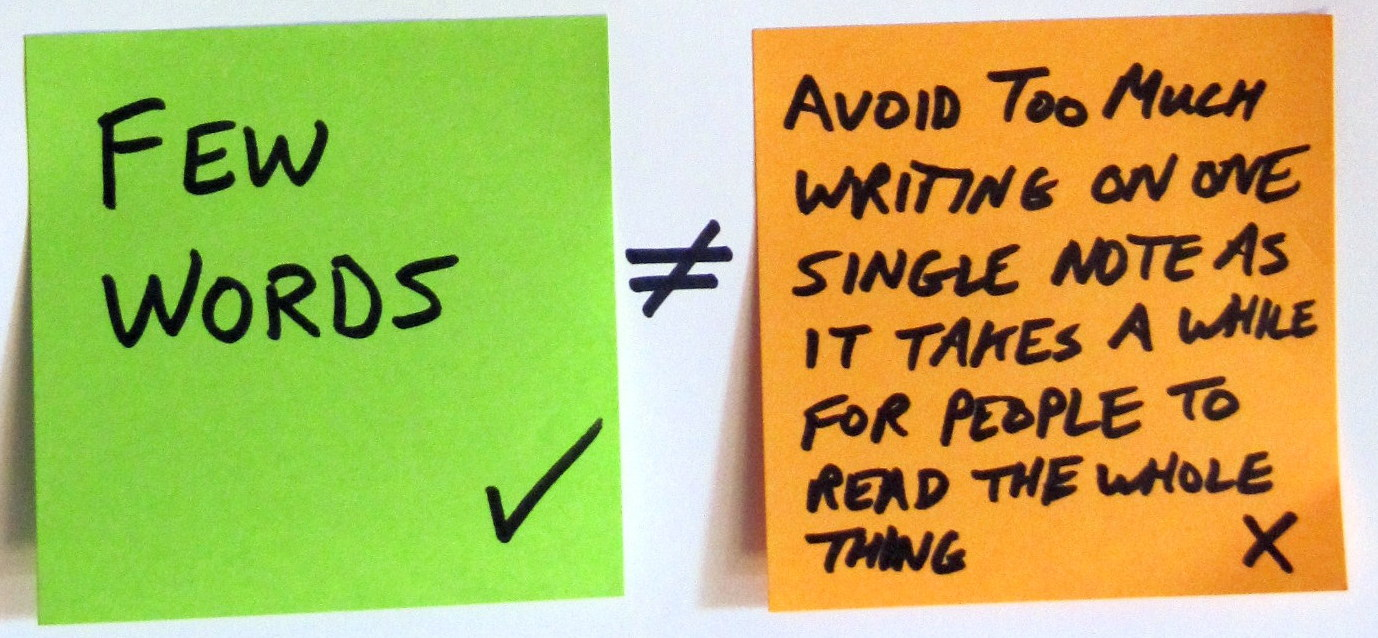 FEW
WORDS
✓
≠
AVOID TOO MUCH
WRITING ON ONE
SINGLE NOTE AS
IT TAKES A WHILE
FOR PEOPLE TO
READ THE WHOLE
THING
X